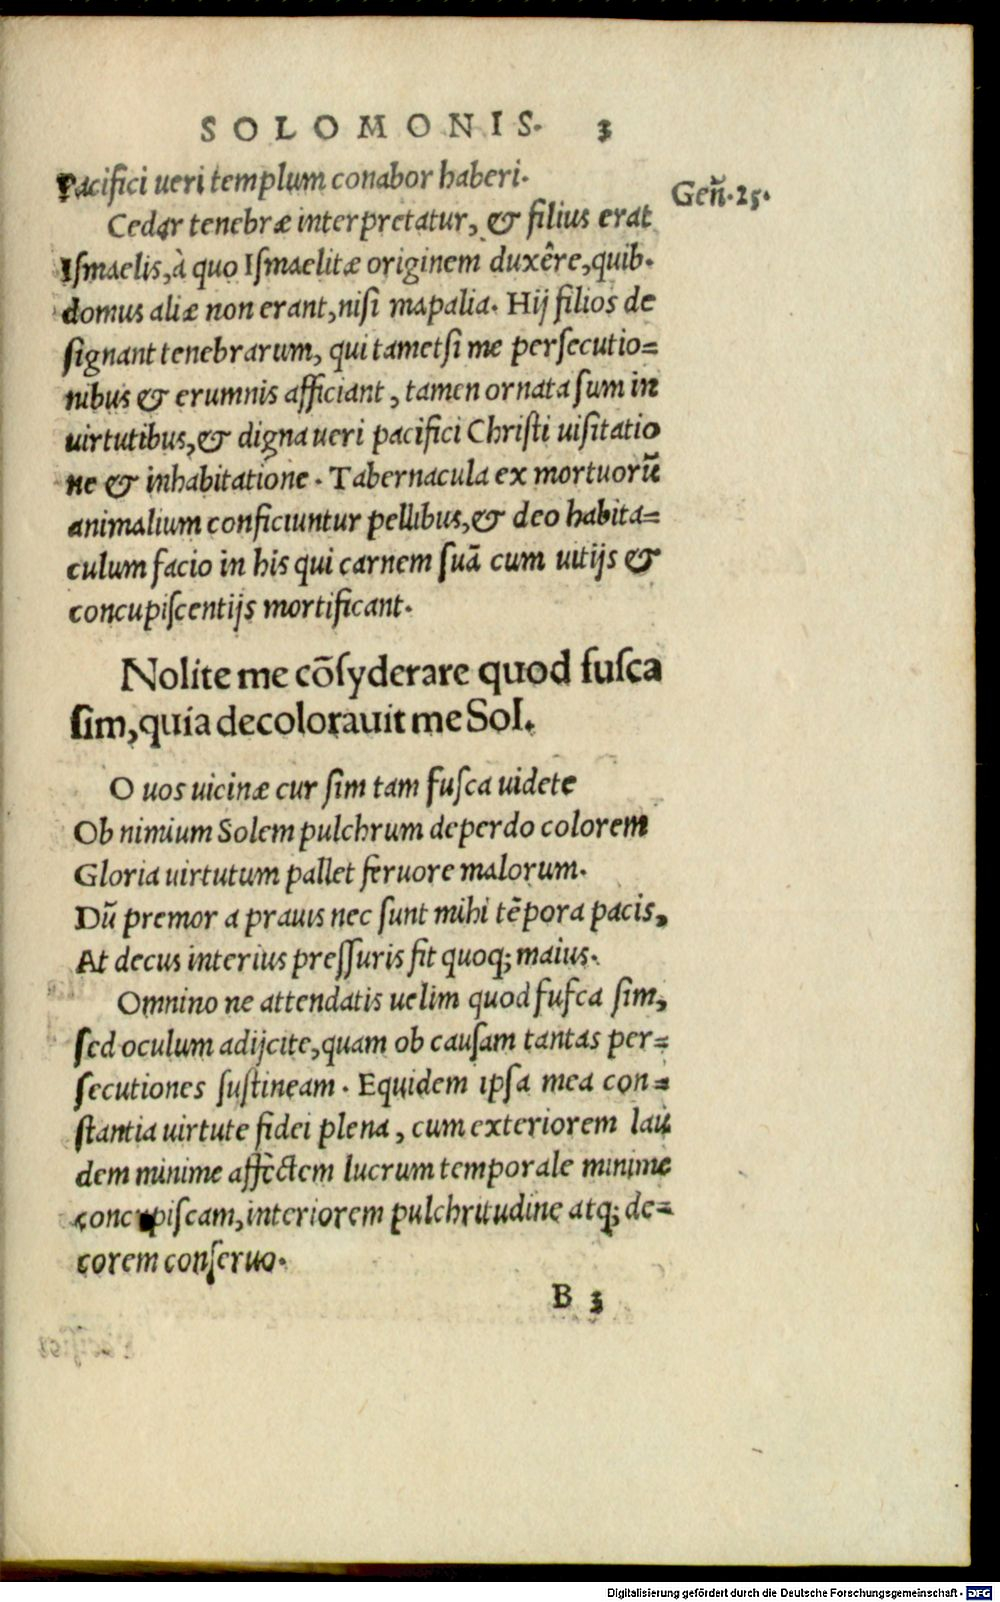 SOLOMONIS. 3
Pacifici ueri templum conabor haberi.
Gen̄. 25.
Cedar tenebræ interpretatur, & filius erat
Ismaelis, à quo Ismaelitæ originem duxêre, quib.
domus aliæ non erant, nisi mapalia. Hij filios de
signant tenebrarum, qui tametsi me persecutio=
nibus & erumnis afficiant, tamen ornata sum in
uirtutibus, & digna ueri pacifici Christi uisitatio
ne & inhabitatione. Tabernacula ex mortuorū
animalium conficiuntur pellibus, & deo habita=
culum facio in his qui carnem suā cum uitijs &
concupiscentijs mortificant.
Nolite me cōsyderare quod fusca
sim, quia decolorauit me Sol.
O uos uicinæ cur sim tam fusca uidete
Ob nimium Solem pulchrum deperdo colorem
Gloria uirtutum pallet feruore malorum.
Dū premor a prauis nec sunt mihi tēpora pacis,
At decus interius pressuris fit quoq; maius.
Omnino ne attendatis uelim quod fufca sim,
sed oculum adijcite, quam ob causam tantas per=
secutiones sustineam. Equidem ipsa mea con=
stantia uirtute fidei plena, cum exteriorem lau
dem minime affectem lucrum temporale minime
concupiscam, interiorem pulchritudine atq; de=
corem conseruo.
B 3
Digitalisierung gefördert durch die Deutsche Forschungsgemeinschaft - DFG